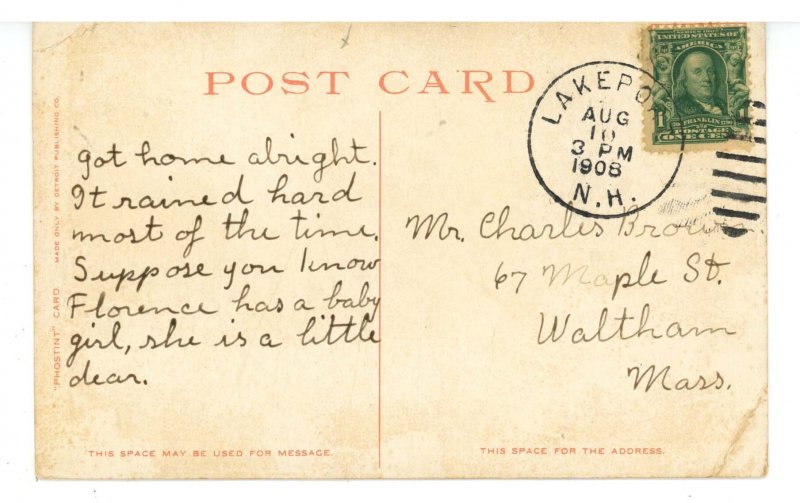 POST CARD
SERIES 1902
UNITED STATES OF
AMERICA
FRANKLIN
POSTAGE
ONE CENT
1
LAKEPO
AUG
10
3 PM
1908
N.H.
"PHOSTINT" CARD
MADE ONLY BY DETROIT PUBLISHING CO.
got home alright.
It rained hard
most of the time.
Suppose you know
Florence has a baby
girl, she is a little
dear.
Mr. Charles Brown.
67 Maple St.
Waltham
Mass.
THIS SPACE MAY BE USED FOR MESSAGE.
THIS SPACE FOR THE ADDRESS.